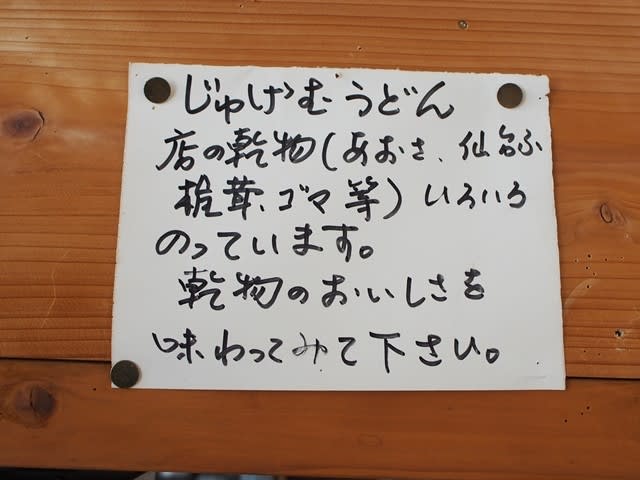 じゅげむうどん
店の乾物(あおさ、仙台ふ
椎茸、ゴマ等)いろいろ
のっています。
乾物のおいしさを
味わってみて下さい。